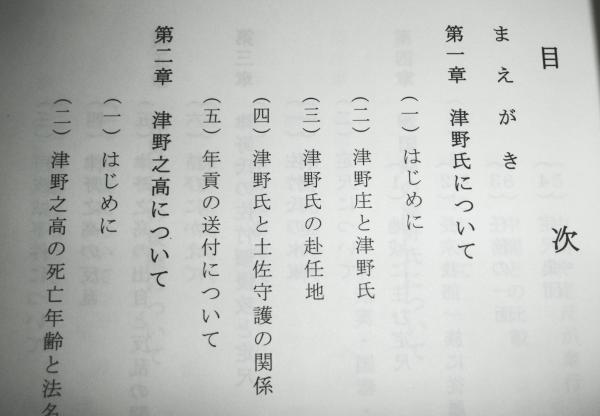 目次
まえがき
第一章 津野氏について
（一）はじめに
（二）津野庄と津野氏
（三）津野氏の赴任地
（四）津野氏と土佐守護の関係
（五）年貢の送付について
第二章 津野之高について
（一）はじめに
（二）津野之高の死亡年齢と法名